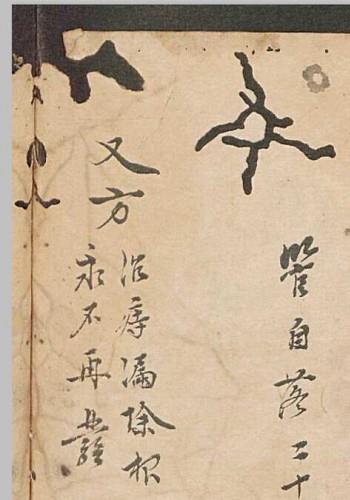 管自落二十
又方
治痔漏除根
永不再發